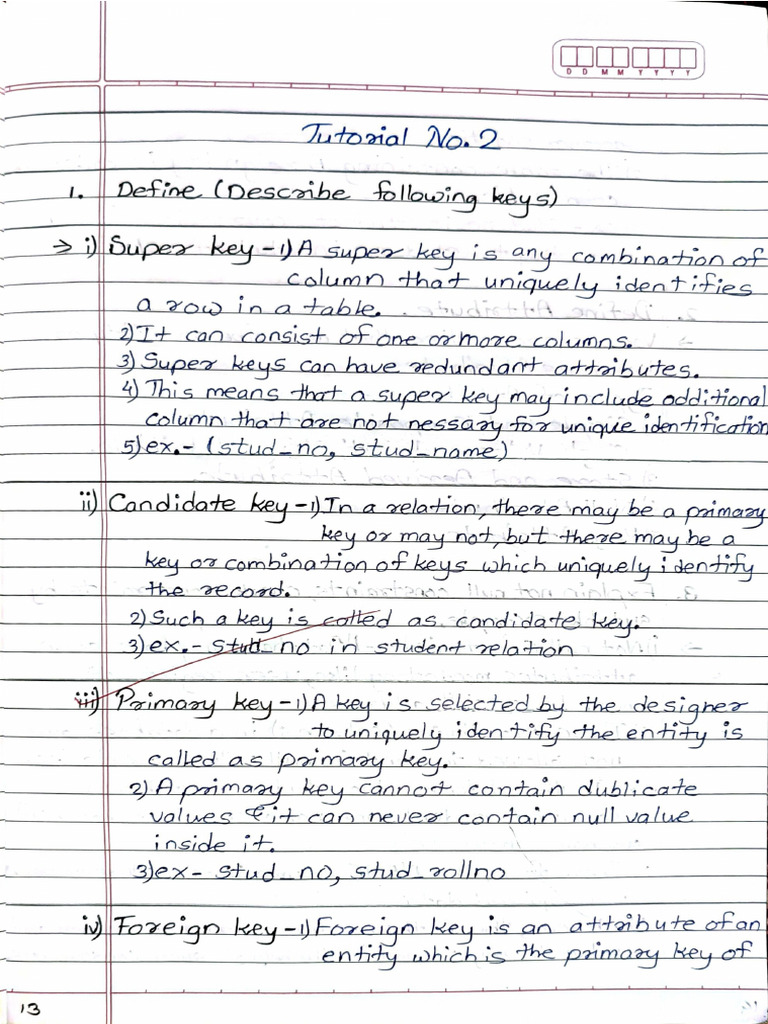 D D M M Y Y Y Y
Tutorial No. 2
1. Define (Describe following keys)
→ i) Super key - 1) A super key is any combination of
column that uniquely identifies
a row in a table.
2) It can consist of one or more columns.
3) Super keys can have redundant attributes.
4) This means that a super key may include additional
column that are not nessary for unique identification
5) ex.- (stud_no, stud_name)
ii) Candidate key - 1) In a relation, there may be a primary
key or may not, but there may be a
key or combination of keys which uniquely identify
the record.
2) Such a key is called as candidate key.
3) ex.- stud_no in student relation
iii) Primary key - 1) A key is selected by the designer
to uniquely identify the entity is
called as primary key.
2) A primary key cannot contain dublicate
values & it can never contain null value
inside it.
3) ex - stud_no, stud_rollno
iv) Foreign key - 1) Foreign key is an attribute of an
entity which is the primary key of
13